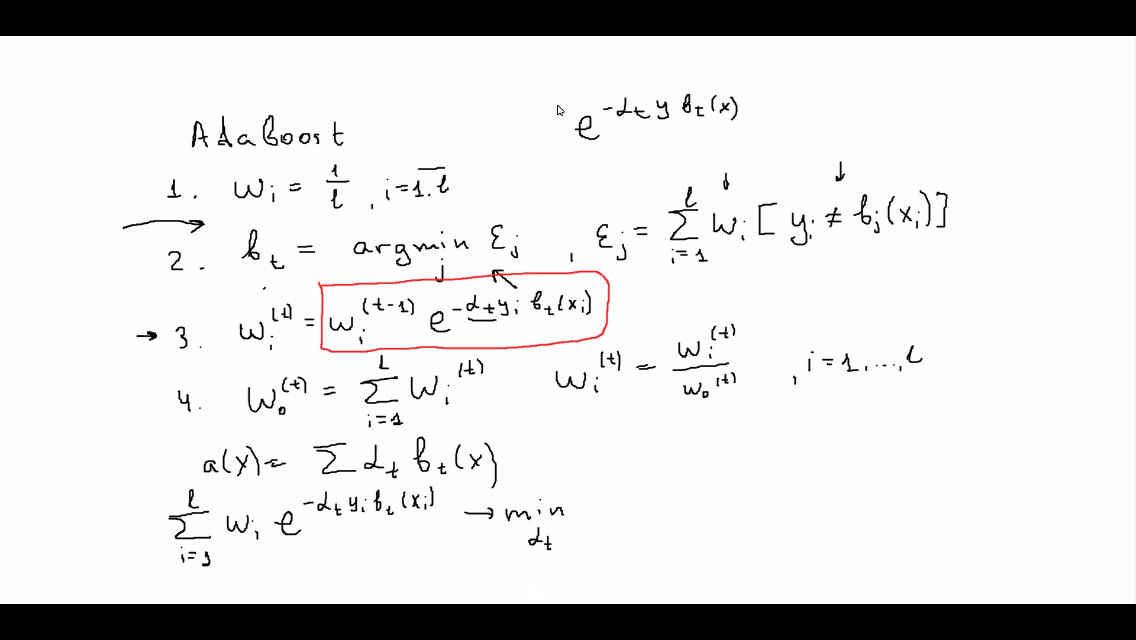 e^{-α_t y b_t(x)}
AdaBoost
1. w_i = 1/l, i=1.l
2. b_t = argmin_j ε_j, ε_j = Σ_{i=1}^{l} w_i [y_i ≠ b_j(x_i)]
3. w_i^{(t)} = w_i^{(t-1)} e^{-α_t y_i b_t(x_i)}
4. w_0^{(t)} = Σ_{i=1}^{l} w_i^{(t)} w_i^{(t)} = w_i^{(t)} / w_0^{(t)}, i=1,...,l
a(x) = Σ α_t b_t(x)
Σ_{i=1}^{l} w_i e^{-α_t y_i b_t(x_i)} → min_{α_t}